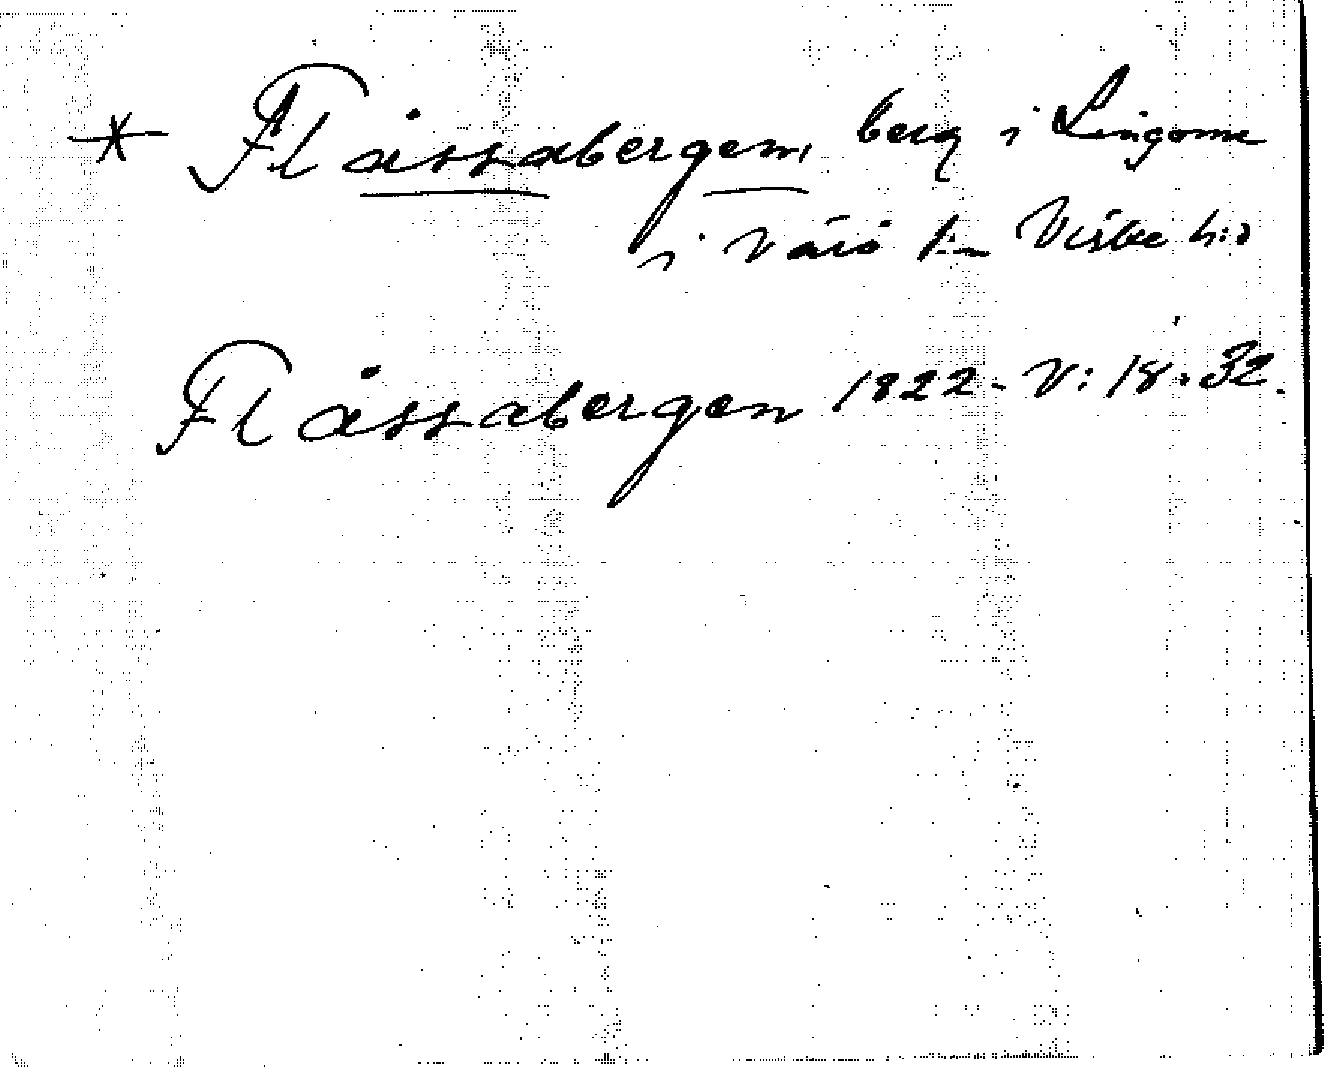 * Flåssabergen, berg i Lingome
i Värö sn Viske hd
Flåssabergen 1822 - V: 18.32.